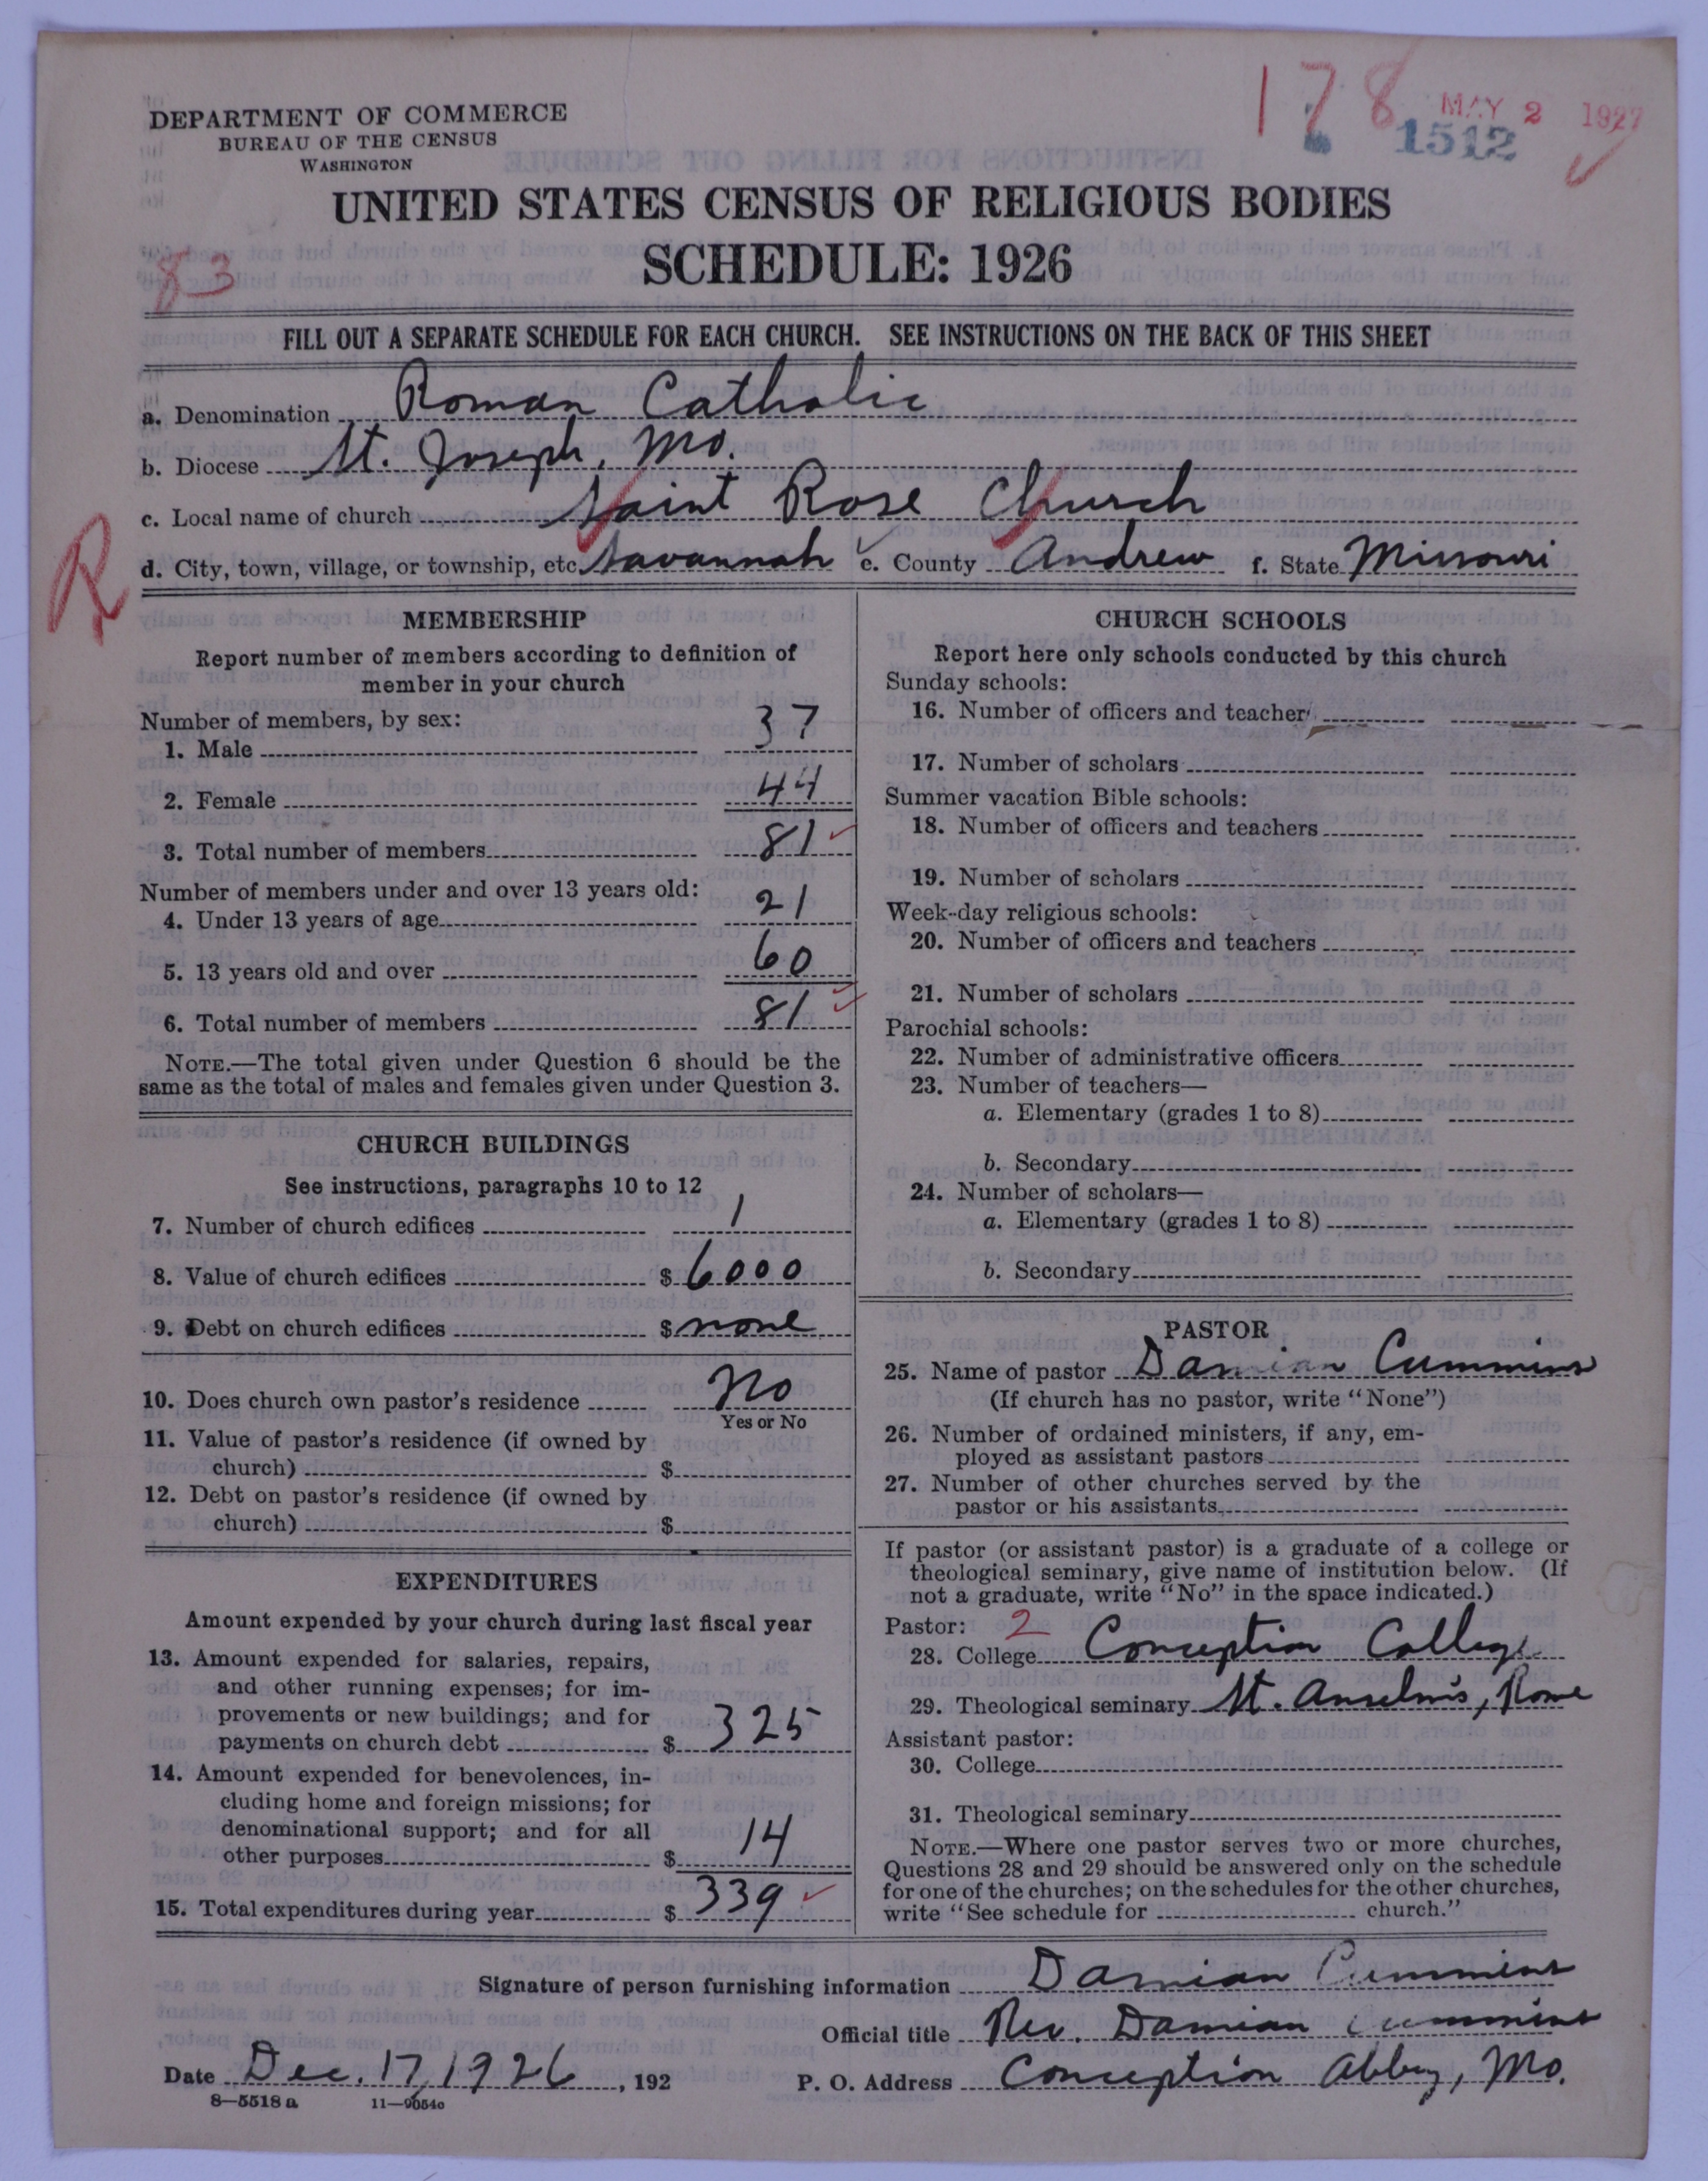 DEPARTMENT OF COMMERCE
BUREAU OF THE CENSUS
WASHINGTON
178 MAY 2 1927
1512
UNITED STATES CENSUS OF RELIGIOUS BODIES
SCHEDULE: 1926
83
FILL OUT A SEPARATE SCHEDULE FOR EACH CHURCH. SEE INSTRUCTIONS ON THE BACK OF THIS SHEET
a. Denomination Roman Catholic
b. Diocese St. Joseph, Mo.
c. Local name of church Saint Rose Church
R
d. City, town, village, or township, etc. Savannah e. County Andrew f. State Missouri
MEMBERSHIP
Report number of members according to definition of
member in your church
Number of members, by sex:
1. Male 37
2. Female 44
3. Total number of members 81
Number of members under and over 13 years old:
4. Under 13 years of age 21
5. 13 years old and over 60
6. Total number of members 81
NOTE.—The total given under Question 6 should be the
same as the total of males and females given under Question 3.
CHURCH BUILDINGS
See instructions, paragraphs 10 to 12
7. Number of church edifices 1
8. Value of church edifices $ 6000
9. Debt on church edifices $ none
10. Does church own pastor's residence No
Yes or No
11. Value of pastor's residence (if owned by
church) $
12. Debt on pastor's residence (if owned by
church) $
EXPENDITURES
Amount expended by your church during last fiscal year
13. Amount expended for salaries, repairs,
and other running expenses; for im-
provements or new buildings; and for
payments on church debt $ 325
14. Amount expended for benevolences, in-
cluding home and foreign missions; for
denominational support; and for all
other purposes $ 14
15. Total expenditures during year $ 339
CHURCH SCHOOLS
Report here only schools conducted by this church
Sunday schools:
16. Number of officers and teacher
17. Number of scholars
Summer vacation Bible schools:
18. Number of officers and teachers
19. Number of scholars
Week-day religious schools:
20. Number of officers and teachers
21. Number of scholars
Parochial schools:
22. Number of administrative officers
23. Number of teachers—
a. Elementary (grades 1 to 8)
b. Secondary
24. Number of scholars—
a. Elementary (grades 1 to 8)
b. Secondary
PASTOR
25. Name of pastor Damian Cummins
(If church has no pastor, write "None")
26. Number of ordained ministers, if any, em-
ployed as assistant pastors
27. Number of other churches served by the
pastor or his assistants
If pastor (or assistant pastor) is a graduate of a college or
theological seminary, give name of institution below. (If
not a graduate, write "No" in the space indicated.)
Pastor: 2
28. College Conception College
29. Theological seminary St. Anselm's, Rome
Assistant pastor:
30. College
31. Theological seminary
NOTE.—Where one pastor serves two or more churches,
Questions 28 and 29 should be answered only on the schedule
for one of the churches; on the schedules for the other churches,
write "See schedule for church."
Signature of person furnishing information Damian Cummins
Official title Rev. Damian Cummins
Date Dec. 17, 1926, 192 P. O. Address Conception Abbey, Mo.
8—5518 a 11—9054c